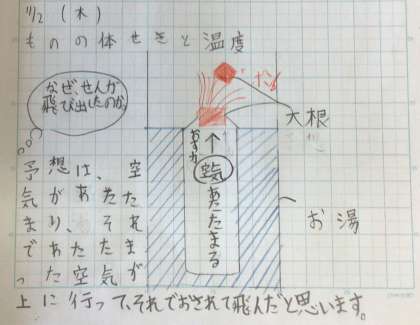 11/2 (木)
ものの体せきと温度
なぜ、せんが
飛び出したのか。
ポン
大根
おすか
↑
空気
あたたまる
お湯
予想は、空
気があたた
まり、それ
であたたま
った空気が
上に行って、それでおされて飛んだと思います。